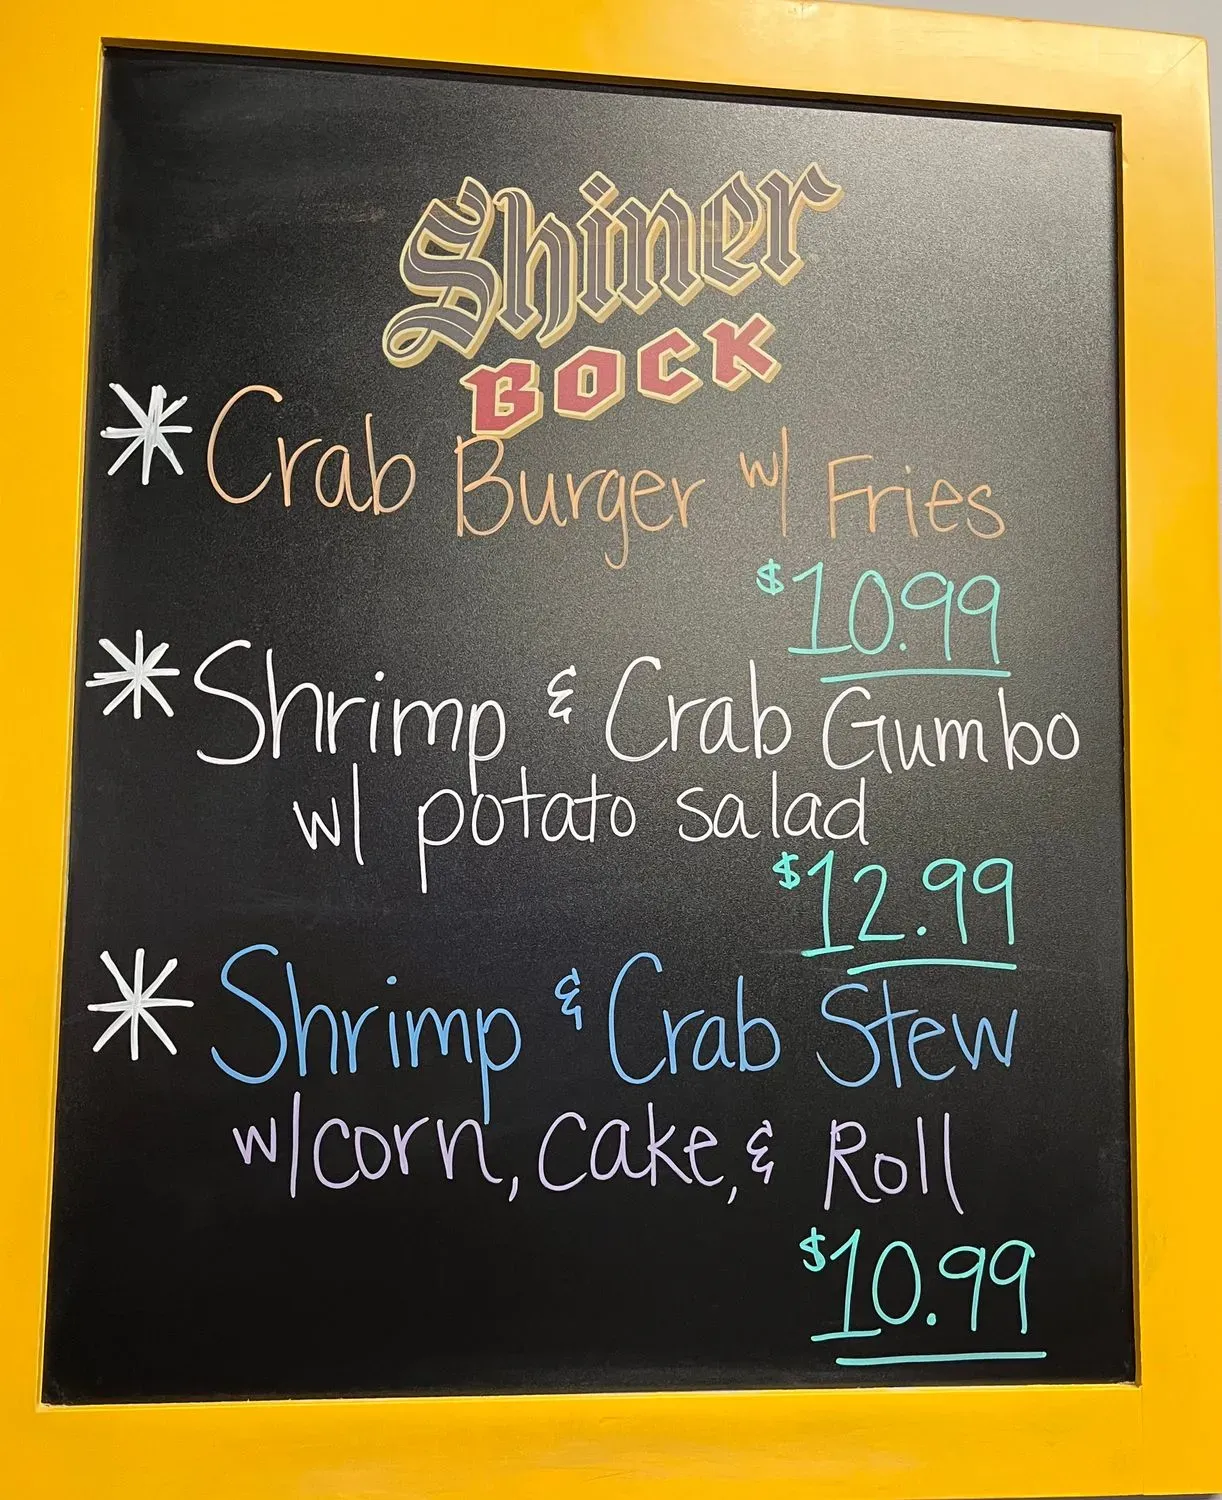 Shiner
BOCK
* Crab Burger w/ Fries
$10.99
* Shrimp & Crab Gumbo
w/ potato salad
$12.99
* Shrimp & Crab Stew
w/corn, cake, & Roll
$10.99